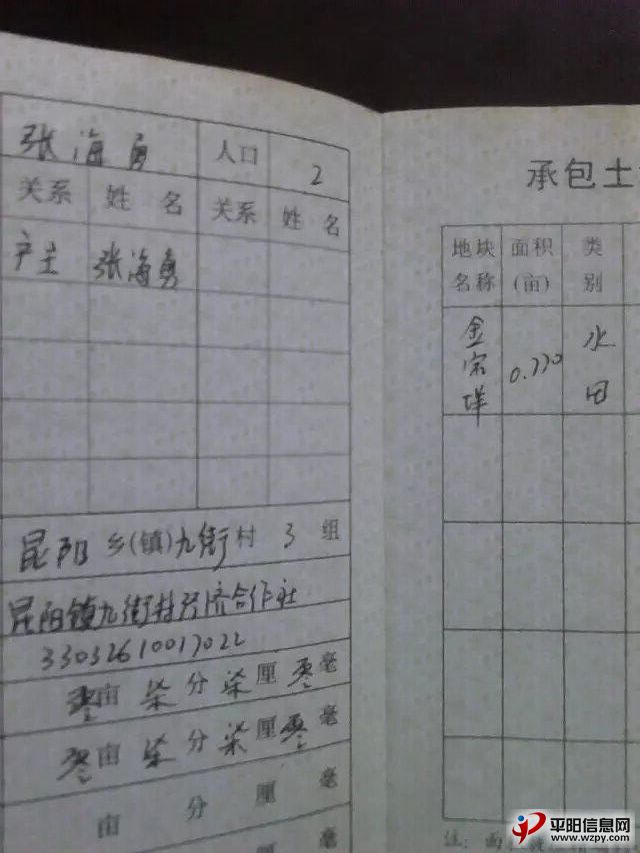 张海勇 人口 2
关系 姓名 关系 姓名
户主 张海勇
昆阳 乡(镇) 九街 村 3 组
昆阳镇九街村经济合作社
33032610017022
零亩柒分柒厘零毫
零亩柒分柒厘零毫
亩 分 厘 毫
毫
承包土
地块名称 面积(亩) 类别
金宗垟 0.770 水田
注:
平阳信息网
www.wzpy.com